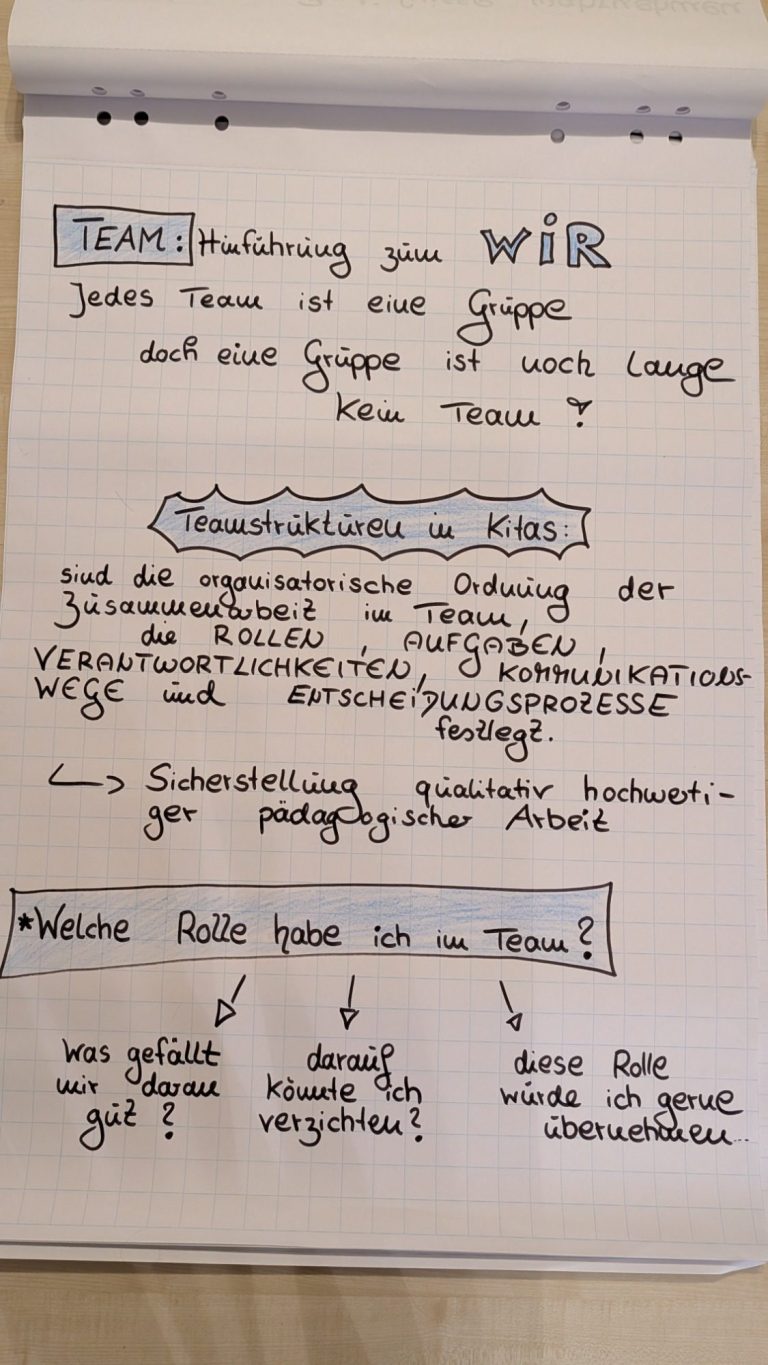 TEAM: Hinführung zum WIR
Jedes Team ist eine Gruppe
doch eine Gruppe ist noch lange
kein Team !
Teamstrukturen in Kitas:
sind die organisatorische Ordnung der
Zusammenarbeit im Team,
die ROLLEN, AUFGABEN,
VERANTWORTLICHKEITEN, KOMMUNIKATIONS-
WEGE und ENTSCHEIDUNGSPROZESSE
festlegt.
↳ Sicherstellung qualitativ hochwerti-
ger pädagogischer Arbeit
*Welche Rolle habe ich im Team?
Was gefällt
mir daran
gut?
darauf
könnte ich
verzichten?
diese Rolle
würde ich gerne
übernehmen...